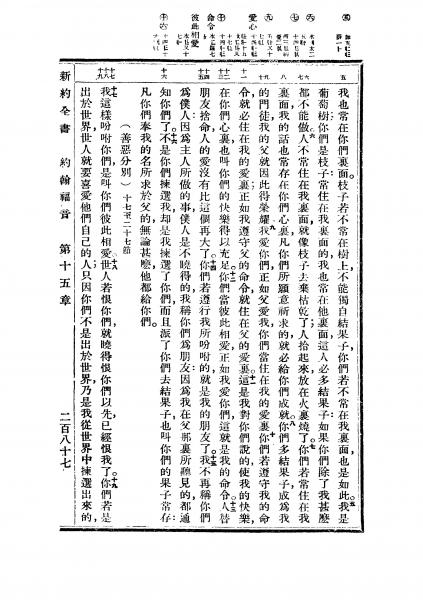 我也常在你們裏面枝子若不常在樹上不能獨自結果子你們若不常在我裏面也是如此我是
葡萄樹你們是枝子常住在我裏面的我也常在他裏面這人必多結果子如果你們除了我甚麽
都不能做人不常住在我裏面就像枝子去棄枯乾了人拾起來放在火裏燒了你們若常住在我
裏面我的話也常存在你們心裏凡你們所願意祈求的就必給你們成就你們多結果子成爲我
的門徒我的父就因此得榮耀我愛你們正如父愛我你們當常住在我的愛裏你們若遵守我的命
令就必住在我的愛裏正如我遵守父的命令就住在父的愛裏這是我對你們說的使我的快樂
在你們心裏也叫你們的快樂得以充足你們當彼此相愛正如我愛你們這就是我的命令人替
朋友捨命人的愛沒有比這個再大了你們若遵行我所吩咐的就是我的朋友了我不再稱你們
爲僕人因爲主人所做的事僕人是不曉得的我稱你們爲朋友因爲我在父那裏所聽見的都通
知你們了不是你們揀選我却是我揀選了你們而且派了你們去結果子也叫你們的果子常存
凡你們奉我的名所求於父的無論甚麽他都給你們。
(善惡分別)十七至二十七節
我這樣吩咐你們是叫你們彼此相愛世人若恨你們就曉得恨你們以先已經恨我了你們若是
出於世界世人就要喜愛他們自己的人只因你們不是出於世界乃是我從世界中揀選出來的
新約全書 約翰福音 第十五章 二百八十七
愛心
命令
彼此相愛